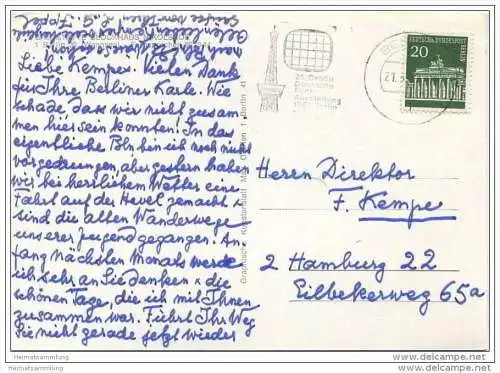 Liebe Kempes. Vielen Dank
für Ihre Berliner Karte. Wie
schade dass wir nicht zusam
men hier sein konnten. In das
eigentliche Bln bin ich noch nicht
vorgedrungen, aber gestern haben
wir bei herrlichem Wetter eine
Fahrt auf der Havel gemacht u
sind die alten Wanderwege
unserer Jugend gegangen. An
fang nächsten Monats werde
ich sehr an Sie denken u die
schönen Tage, die ich mit Ihnen
zusammen war. Führt Ihr Weg
Sie nicht gerade jetzt wieder
BLOCKHAUS NIKOLSKOE
Graphische Kunstanstalt
1 Berlin 41
DEUTSCHE BUNDESPOST
BERLIN
20
Herrn Direktor
F. Kempe
2 Hamburg 22
Eilbekerweg 65a
Heimatsammlung
www.heimatsammlung.de
http://www.delcampe.net